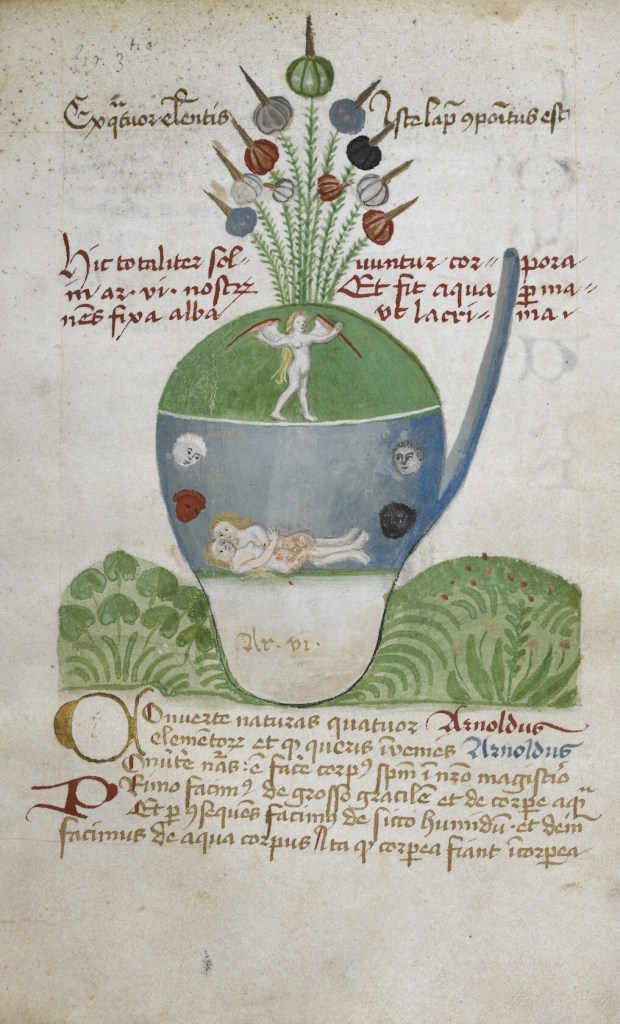 Exq̃tuor elentis Iste lap̄ ꝯpoītus est
Hic totaliter sol= uuntur cor= pora
in ar. vi. nostr Et fit aqua ꝑ ma=
nēs fixa alba vt lacri= ma.
Ar. vi.
Conuerte naturas quatuor Arnoldus
elementorꝝ et qꝫ queris īuemes Arnoldus
Cōuˀte nr̄as: ē facˀe corpˀ spm̄ ī nr̄o magistˀio
Primo facimˀ de grosso gracilē et de corpe aq̄
Et ꝑ ꝯseqnēs facimˀ de sicco humidū. et dein
facimus de aqua corpus Ita qꝫ corpea fiant īcorpea